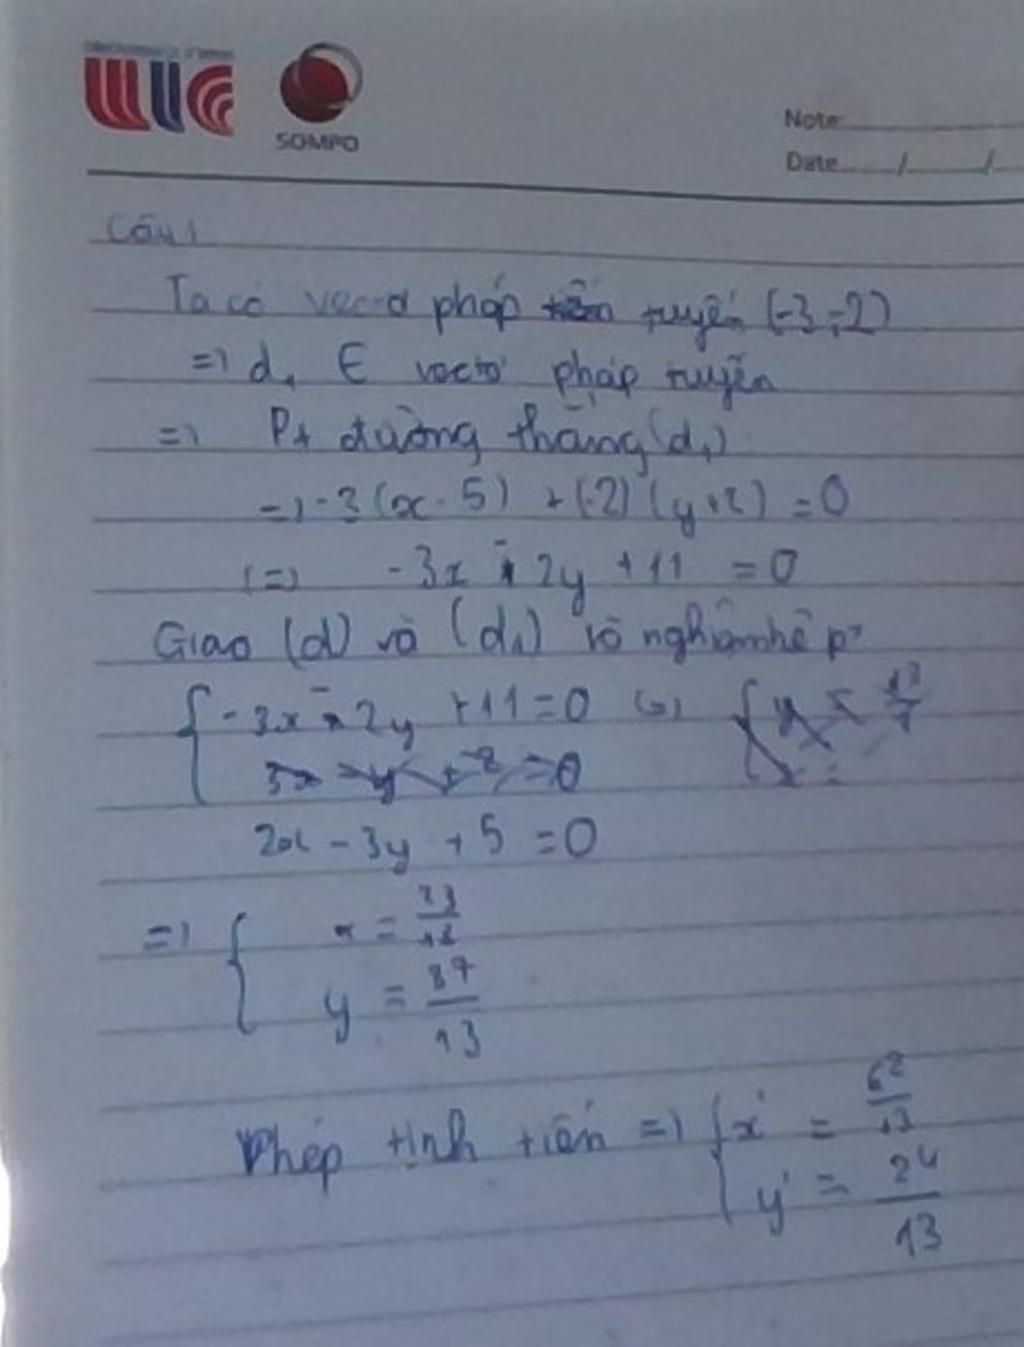 SOMPO
Note
Date / /
Câu 1
Ta có vectơ pháp tuyến (-3;-2)
=) d₁ ∈ vectơ pháp tuyến
=) Pt đường thẳng (d₁)
=) -3(x-5) + (-2)(y+2) = 0
(=) -3x - 2y + 11 = 0
Giao (d) và (d₁) là nghiệm hệ pt
{ -3x - 2y + 11 = 0 (=)
2x - 3y + 5 = 0
=) { x = 23/13
y = 37/13
Phép tịnh tiến =) { x' = 62/13
y' = 24/13